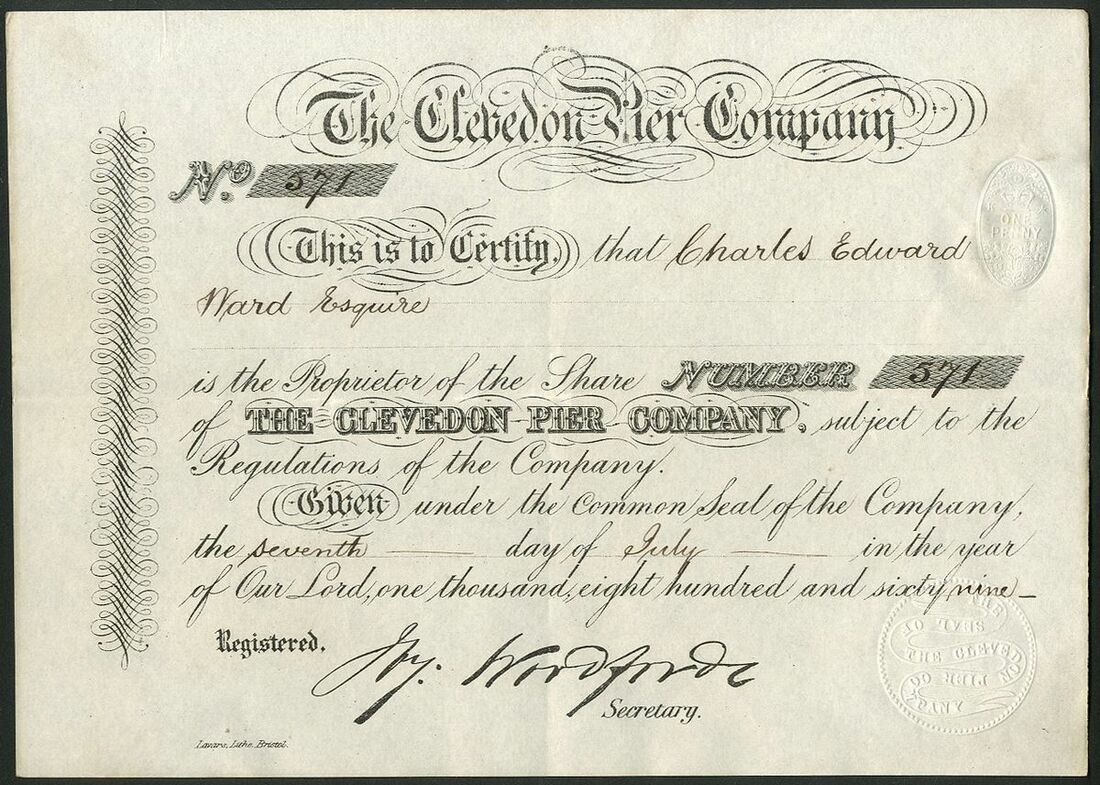 The Clevedon Pier Company
No. 371
This is to Certify, that Charles Edward
Ward Esquire
is the Proprietor of the Share NUMBER 371
of THE CLEVEDON PIER COMPANY, subject to the
Regulations of the Company.
Given under the Common Seal of the Company,
the seventh day of July in the year
of Our Lord, one thousand, eight hundred and sixty nine
Registered.
Secretary.
Lavars, Litho. Bristol.
ONE
PENNY
THE
SEAL OF
THE CLEVEDON
PIER COMPANY